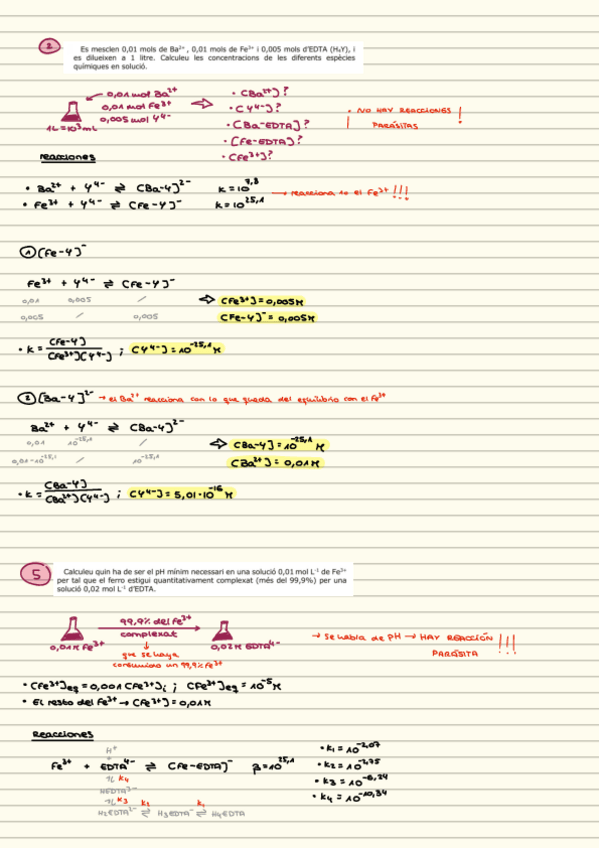 2 Es mesclen 0,01 mols de Ba²⁺ , 0,01 mols de Fe³⁺ i 0,005 mols d'EDTA (H₄Y), i
es dilueixen a 1 litre. Calculeu les concentracions de les diferents espècies
químiques en solució.
0,01 mol Ba²⁺
0,01 mol Fe³⁺
0,005 mol Y⁴⁻
1L = 10³ mL
• [Ba²⁺]?
• [Y⁴⁻]?
• [Ba-EDTA]?
• [Fe-EDTA]?
• [Fe³⁺]?
• NO HAY REACCIONES
PARÁSITAS !
!
reacciones
• Ba²⁺ + Y⁴⁻ ⇌ [Ba-Y]²⁻ K = 10^7,8
• Fe³⁺ + Y⁴⁻ ⇌ [Fe-Y]⁻ K = 10^25,1
→ reacciona 1o el Fe³⁺ !!!
① [Fe-Y]⁻
Fe³⁺ + Y⁴⁻ ⇌ [Fe-Y]⁻
0,01 0,005 /
0,005 / 0,005
⇒ [Fe³⁺] = 0,005M
[Fe-Y]⁻ = 0,005M
• K = [Fe-Y] / [Fe³⁺][Y⁴⁻] ; [Y⁴⁻] = 10^-25,1 M
② [Ba-Y]²⁻ → el Ba²⁺ reacciona con lo que queda del equilibrio con el Fe³⁺
Ba²⁺ + Y⁴⁻ ⇌ [Ba-Y]²⁻
0,01 10^-25,1 /
0,01-10^-25,1 / 10^-25,1
⇒ [Ba-Y] = 10^-25,1 M
[Ba²⁺] = 0,01M
• K = [Ba-Y] / [Ba²⁺][Y⁴⁻] ; [Y⁴⁻] = 5,01·10^-16 M
5 Calculeu quin ha de ser el pH mínim necessari en una solució 0,01 mol L⁻¹ de Fe³⁺
per tal que el ferro estigui quantitativament complexat (més del 99,9%) per una
solució 0,02 mol L⁻¹ d'EDTA.
0,01M Fe³⁺
99,9% del Fe³⁺
complexat
↓
que se haya
consumido un 99,9% Fe³⁺
0,02M EDTA⁴⁻
→ Se habla de PH → HAY REACCIÓN
PARÁSITA !!!
• [Fe³⁺]eq = 0,001 [Fe³⁺]i ; [Fe³⁺]eq = 10⁻⁵ M
• El resto del Fe³⁺ → [Fe³⁺] = 0,01M
Reacciones
H⁺
Fe³⁺ + EDTA⁴⁻ ⇌ [Fe-EDTA]⁻ β = 10^25,1
⇅ K4
HEDTA³⁻
⇅ K3 K2 K1
H2EDTA²⁻ ⇌ H3EDTA⁻ ⇌ H4EDTA
• K1 = 10^-2,07
• K2 = 10^-2,75
• K3 = 10^-6,24
• K4 = 10^-10,34